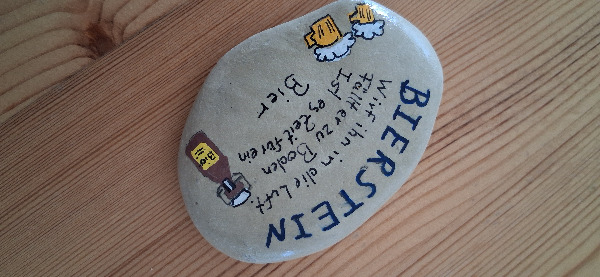 BIERSTEIN
Wirf ihn in die Luft.
Fällt er zu Boden
Ist es Zeit für ein
Bier
Bier